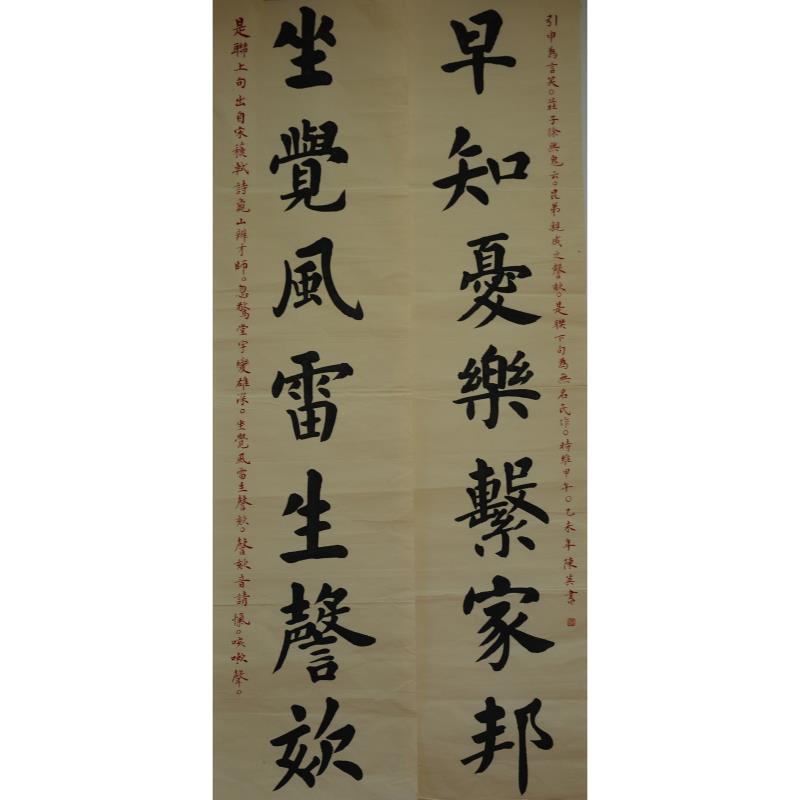 是聯上句出自宋蘓軾詩龜山辨才師。忽驚堂宇變雄深。坐覺風雷生謦欬。謦欬音請慨。咳嗽聲。
坐覺風雷生謦欬
早知憂樂繫家邦
引申為言笑。莊子徐無鬼云。昆弟親戚之謦欬。是聯下句為無名氏作。時維甲午。乙未年陳英書